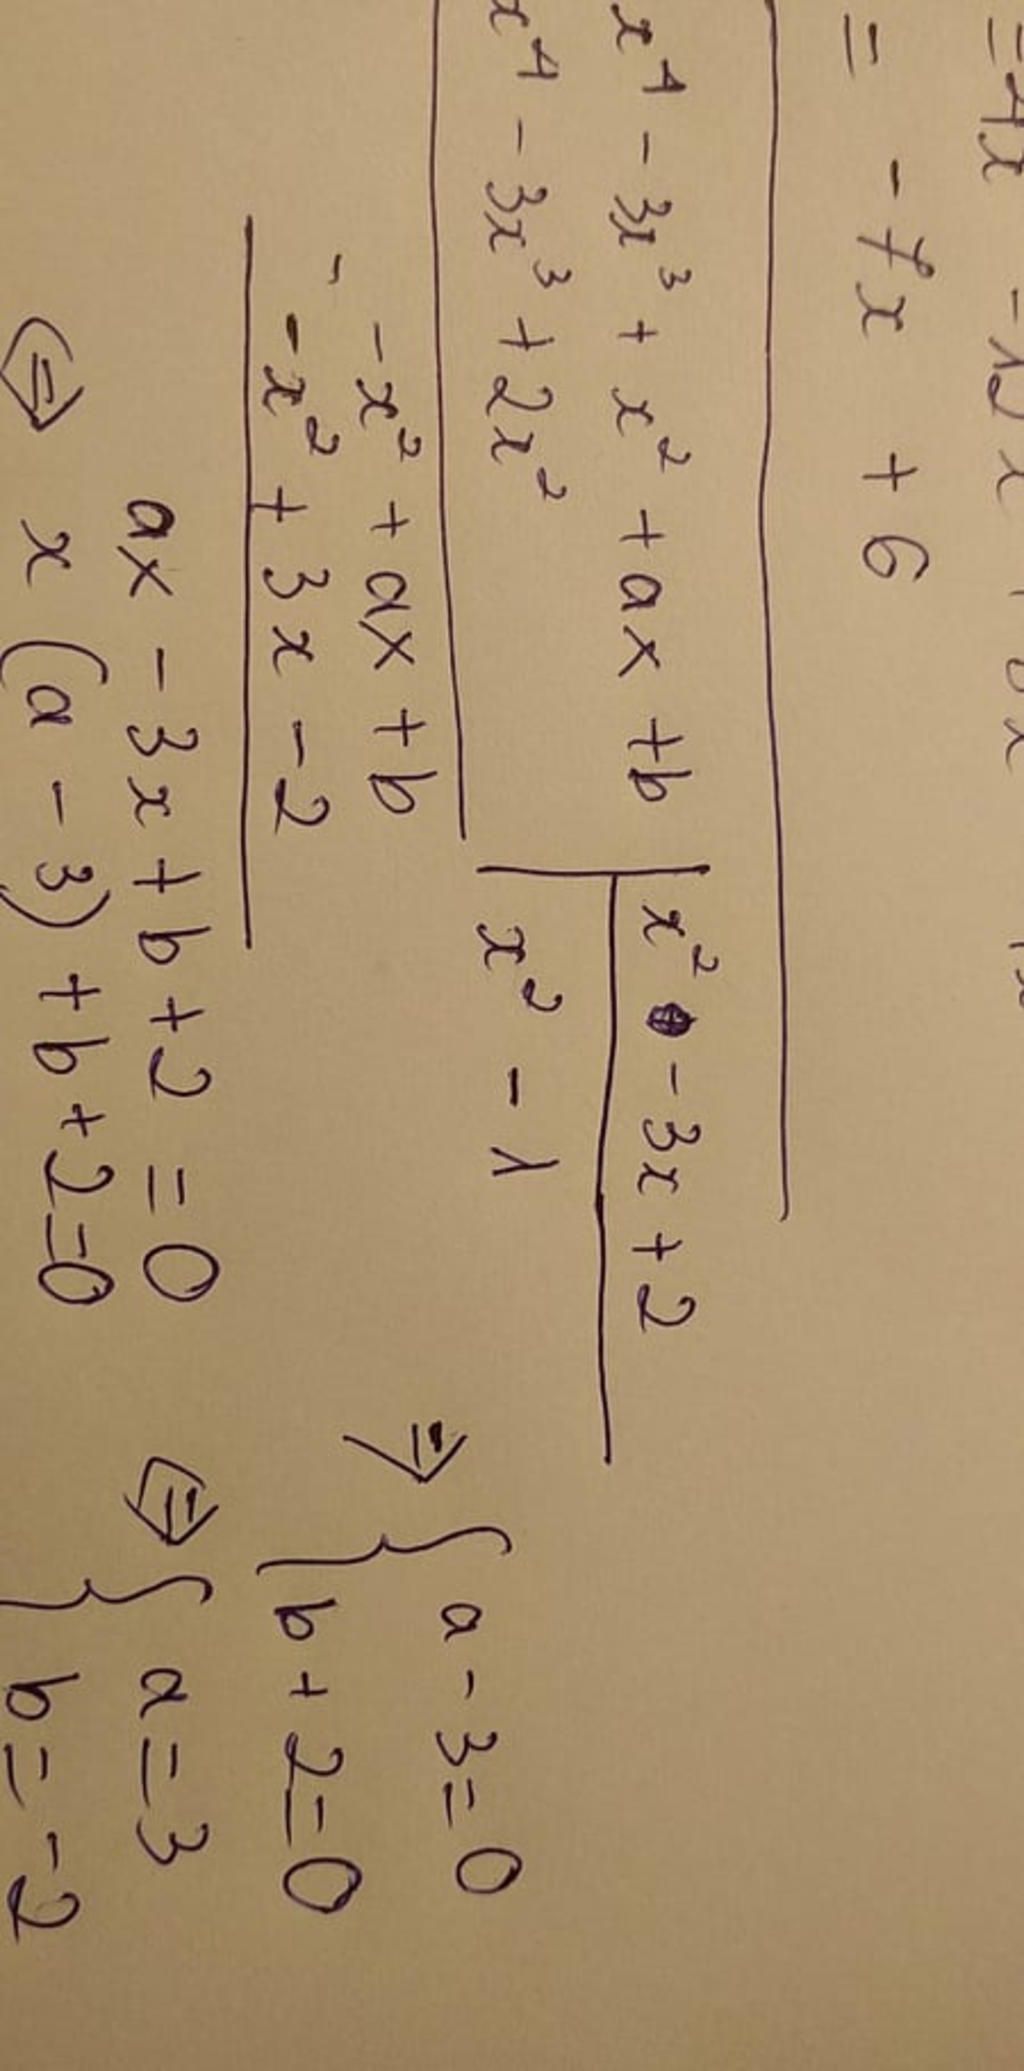 = - 7x + 6
x⁴ - 3x³ + x² + ax + b | x² - 3x + 2
x⁴ - 3x³ + 2x² | x² - 1
- x² + ax + b
- - x² + 3x - 2
ax - 3x + b + 2 = 0
⇔ x (a - 3) + b + 2 = 0
⇒ { a - 3 = 0
b + 2 = 0
⇔ { a = 3
b = -2